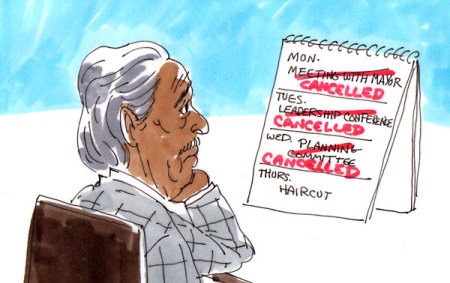 MON.
MEETING WITH MAYOR
CANCELLED
TUES.
LEADERSHIP CONFERENCE
CANCELLED
WED. PLANNING
COMMITTEE
CANCELLED
THURS.
HAIRCUT